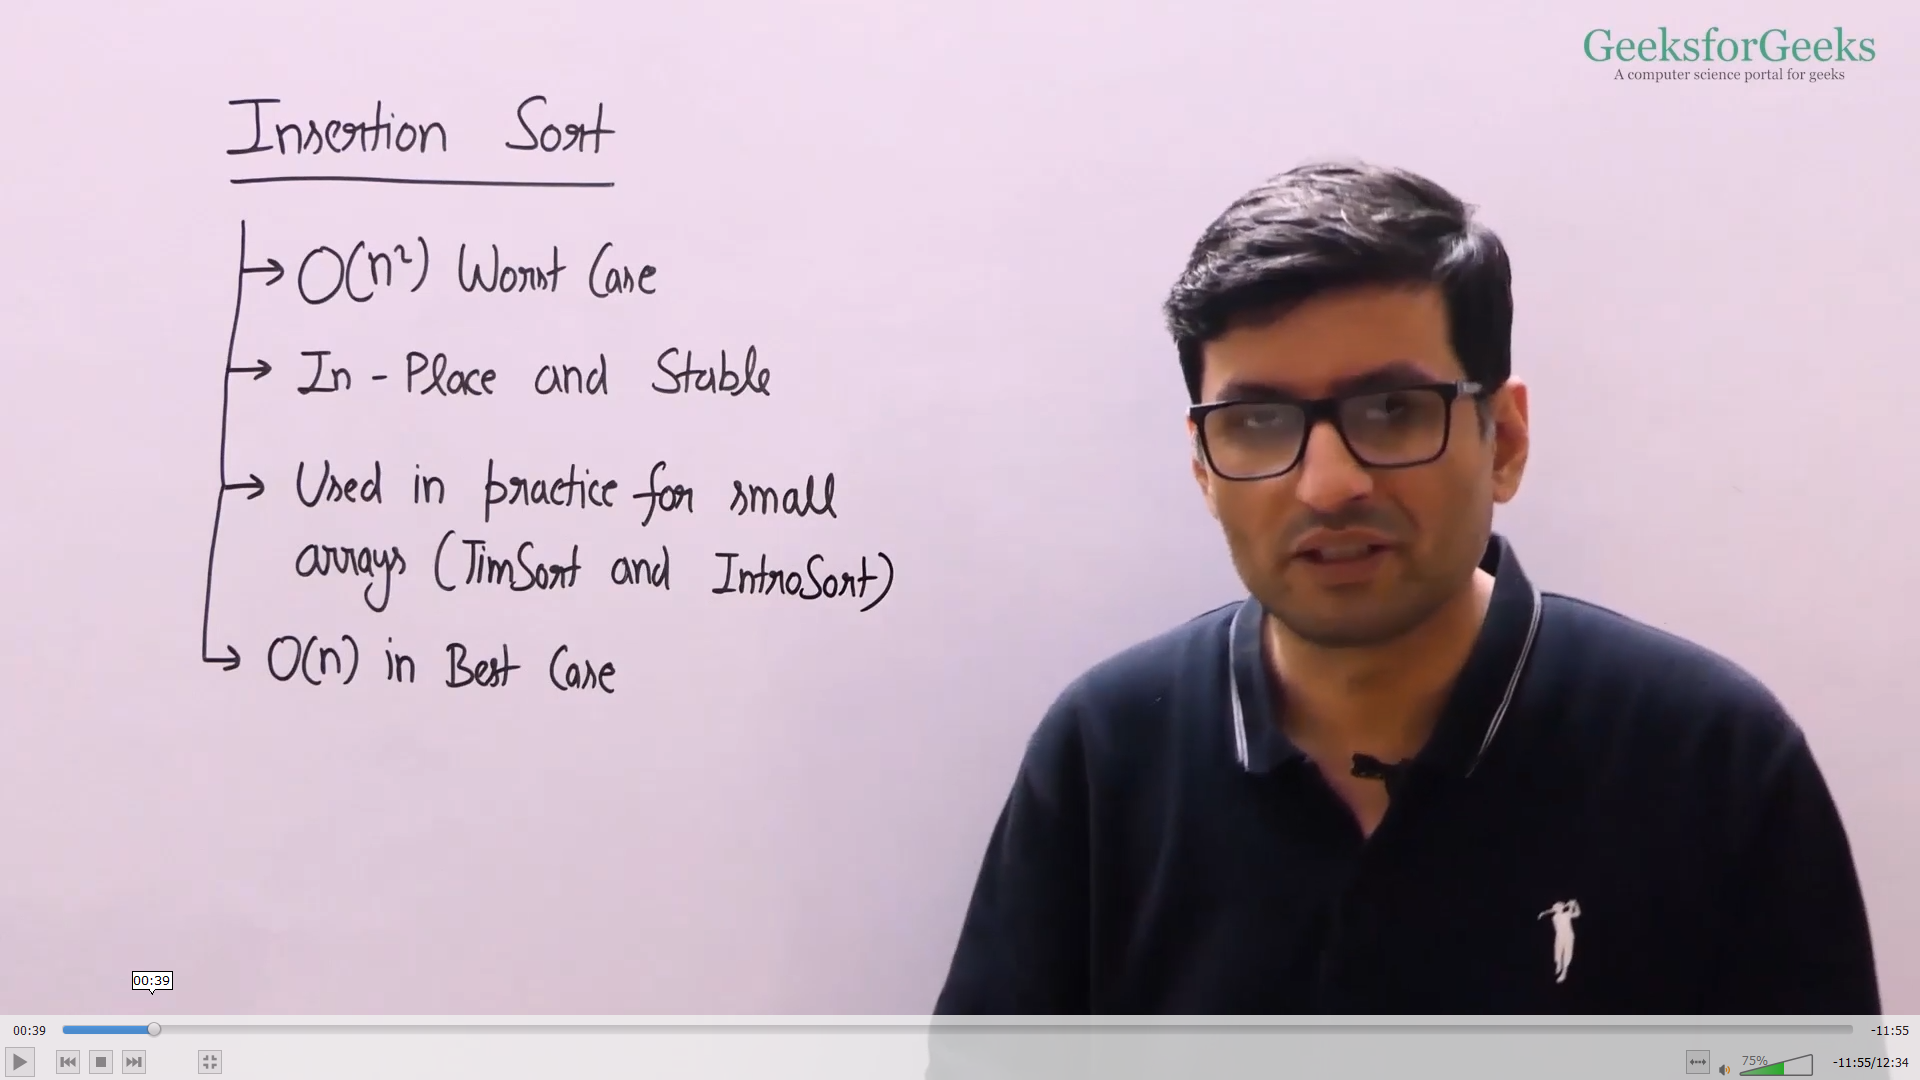 GeeksforGeeks
A computer science portal for geeks
Insertion Sort
O(n²) Worst Case
In - Place and Stable
Used in practice for small
arrays (TimSort and IntroSort)
O(n) in Best Case
00:39
00:39
-11:55
75%
-11:55/12:34